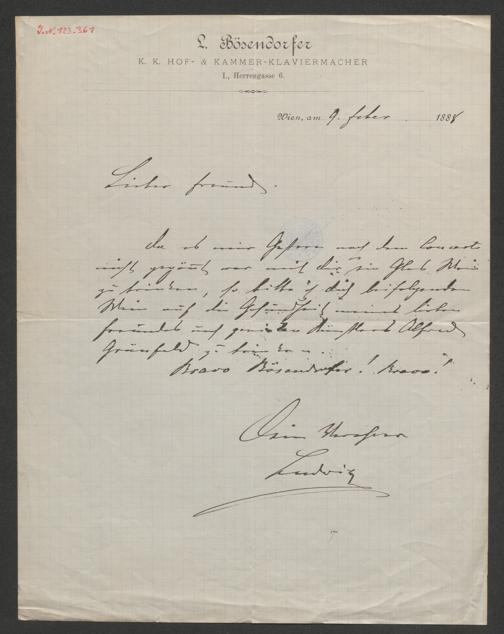 I.N. 123.361
L. Bösendorfer
K. K. HOF- & KAMMER-KLAVIERMACHER
I., Herrengasse 6.
Wien, am 9. feber 1888
Lieber Freund.
Da es mir Gestern nach dem Concerte
nicht gegönnt war mit dir ein Glas Wein
zu trinken, so bitte ich dich beifolgenden
Wein auf die Gesundheit meines lieben
Freundes und Künstlers Alfred
Grünfeld zu trinken.
Bravo Bösendorfer! Bravo!
Dein Verehrer
Ludwig